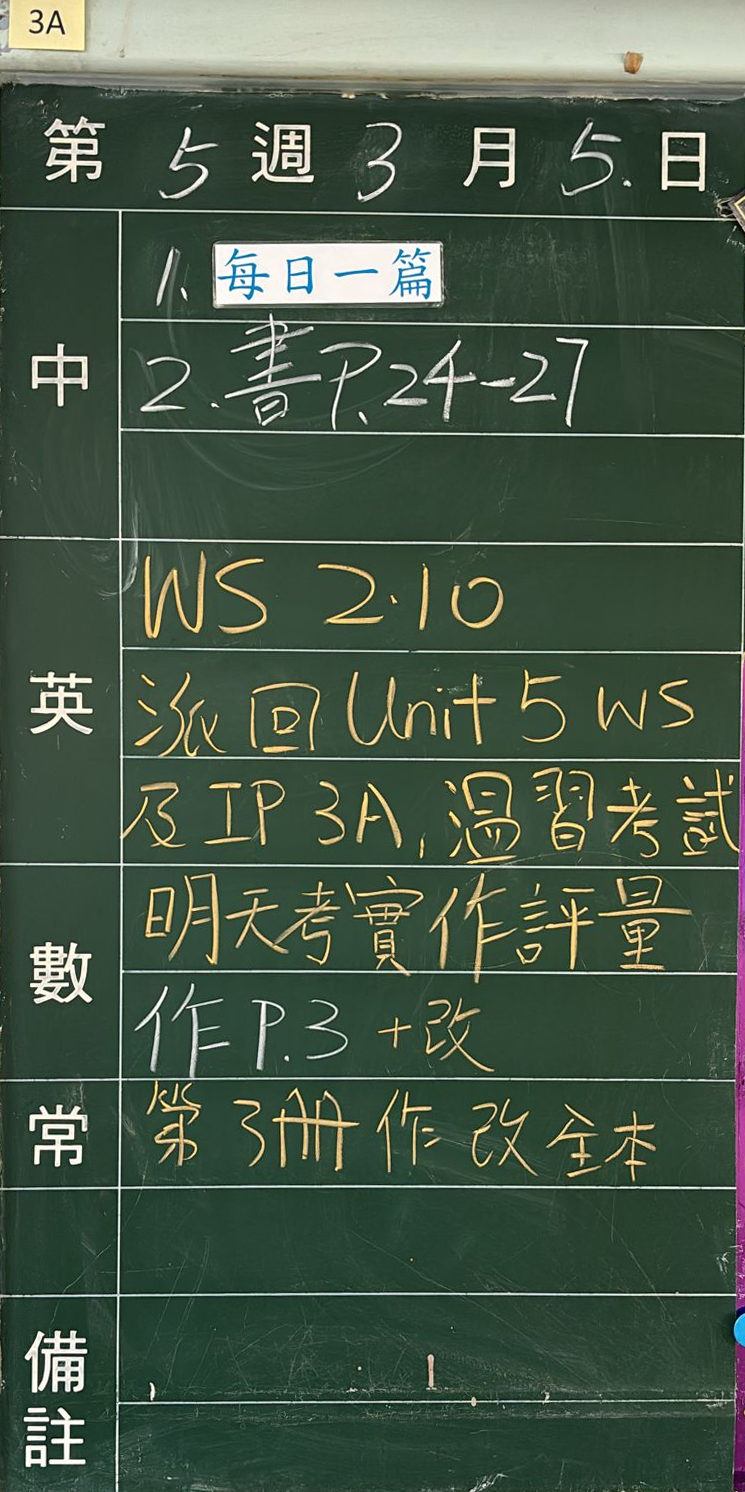 3A
第 5 週 3 月 5. 日
中
1. 每日一篇
2. 書P.24-27
英
WS 2.10
派回Unit 5 WS
及IP 3A, 溫習考試
數
明天考實作評量
作P.3 +改
常
第3冊作改全本
備註